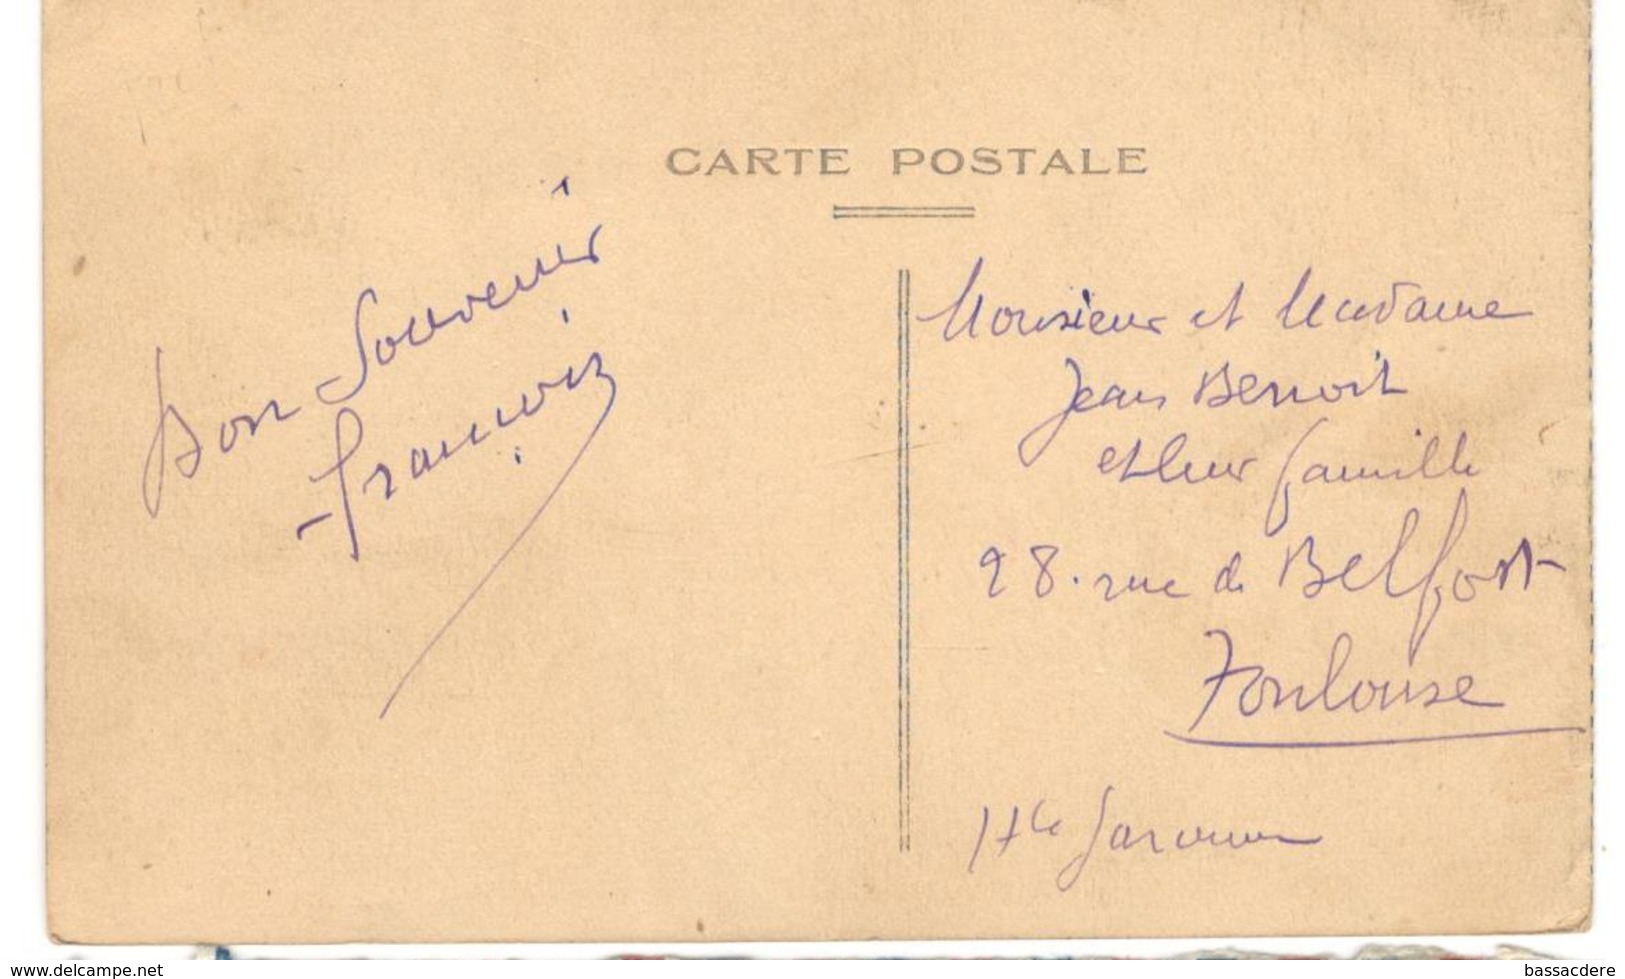 CARTE POSTALE
Bon Souvenir
François
Monsieur et Madame
Jean Benoit
et leur famille
28. rue de Belfort
Toulouse
Hte Garonne
www.delcampe.net
bassacdere